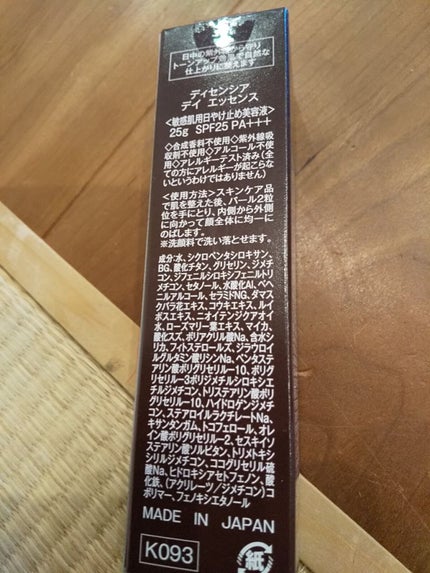 日中の紫外線から守り
トーンアップ効果で自然な
仕上がりに整えます
ディセンシア
デイ エッセンス
<敏感肌用日やけ止め美容液>
25g SPF25 PA+++
◇合成香料不使用◇紫外線吸
収剤不使用◇アルコール不使
用◇アレルギーテスト済み(全
ての方にアレルギーが起こらな
いというわけではありません)
<使用方法>スキンケア品
で肌を整えた後、パール2粒
位を手にとり、内側から外側
に向かって顔全体に均一に
のばします。
※洗顔料で洗い落とせます。
成分:水、シクロペンタシロキサン、
BG、酸化チタン、グリセリン、ジメチ
コン、ジフェニルシロキシフェニルトリ
メチコン、セタノール、水酸化Al、ベヘ
ニルアルコール、セラミドNG、ダマス
クバラ花エキス、コウキエキス、ルイ
ボスエキス、ニオイテンジクアオイ
水、ローズマリー葉エキス、マイカ、
酸化スズ、ポリアクリル酸Na、含水シ
リカ、フィトステロールズ、ジラウロイ
ルグルタミン酸リシンNa、ペンタステ
アリン酸ポリグリセリル-10、ポリグ
リセリル-3ポリジメチルシロキシエ
チルジメチコン、トリステアリン酸ポ
リグリセリル-10、ハイドロゲンジメチ
コン、ステアロイルラクチレートNa、
キサンタンガム、トコフェロール、オレ
イン酸ポリグリセリル-2、セスキイソ
ステアリン酸ソルビタン、トリメトキ
シシリルジメチコン、ココグリセリル硫
酸Na、ヒドロキシアセトフェノン、酸
化鉄、(アクリレーツ/ジメチコン)コ
ポリマー、フェノキシエタノール
MADE IN JAPAN
K093
紙